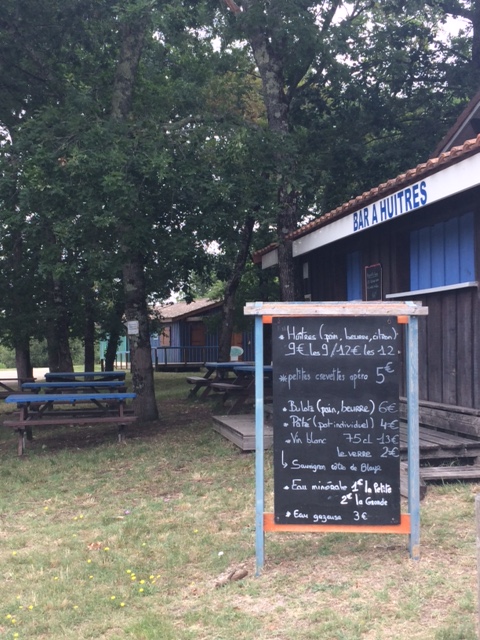 BAR A HUITRES
* Huitres (pain, beurre, citron)
9€ les 9 / 12€ les 12
* petites crevettes apéro 5€
* Bulots (pain, beurre) 6€
* Pâté (pot individuel) 4€
* Vin blanc 75cl - 13€
le verre 2€
↳ Sauvignon côtes de Blaye
* Eau minérale 1€ la Petite
2€ la Grande
* Eau gazeuse 3€